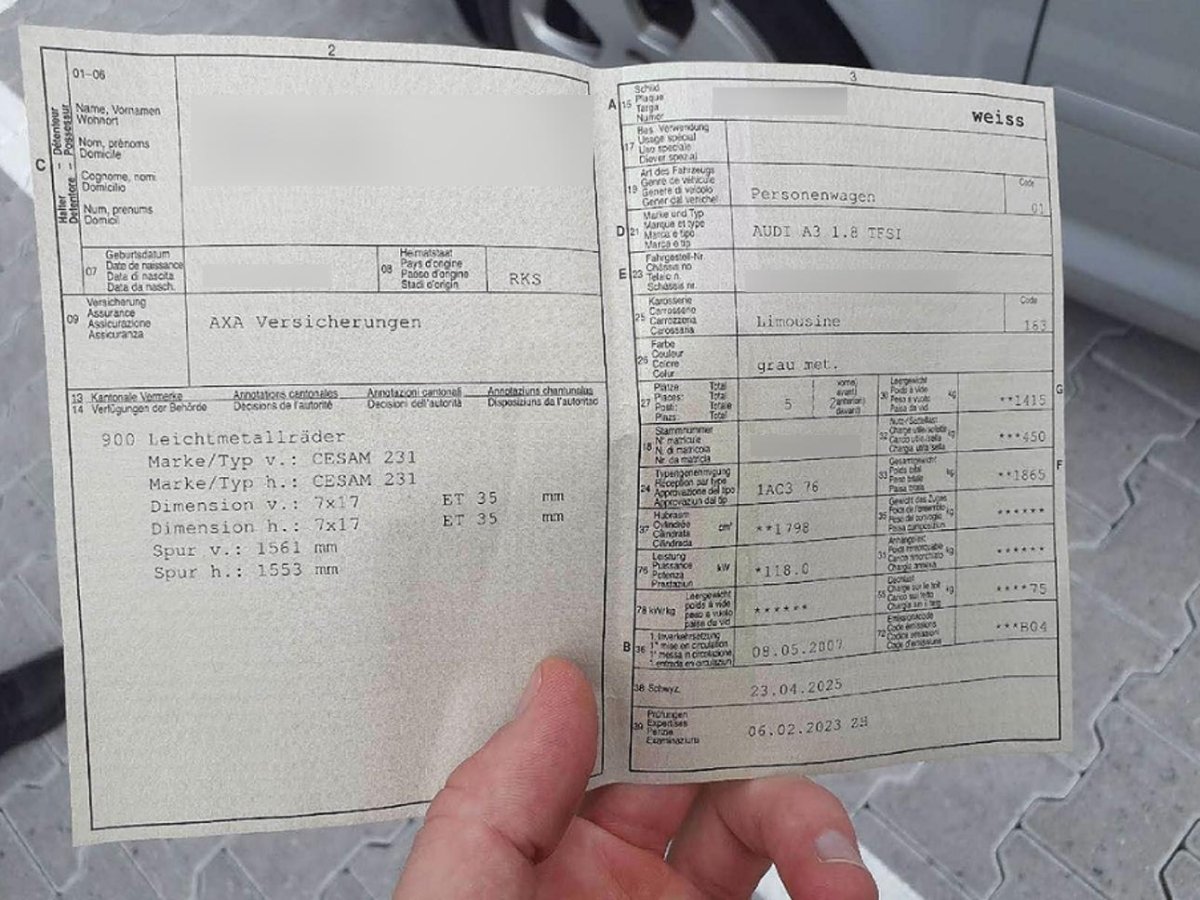 2
01-06
C
Halter Détenteur
Detentore Possessur
Name, Vornamen
Wohnort
Nom, prénoms
Domicile
Cognome, nomi
Domicilio
Num, prenums
Domicil
07
Geburtsdatum
Date de naissance
Data di nascita
Data da nasch.
08
Heimatstaat
Pays d'origine
Paese d'origine
Stadi d'origin
RKS
09
Versicherung
Assurance
Assicurazione
Assicuranza
AXA Versicherungen
13 Kantonale Vermerke Annotations cantonales Annotazioni cantonali Annotaziuns chantunalas
14 Verfügungen der Behörde Décisions de l'autorité Decisioni dell'autorità Disposiziuns da l'autoritad
900 Leichtmetallräder
Marke/Typ v.: CESAM 231
Marke/Typ h.: CESAM 231
Dimension v.: 7x17 ET 35 mm
Dimension h.: 7x17 ET 35 mm
Spur v.: 1561 mm
Spur h.: 1553 mm
3
A 15
Schild
Plaque
Targa
Numer
weiss
17
Bes. Verwendung
Usage spécial
Uso speciale
Diever spezial
19
Art des Fahrzeugs
Genre de véhicule
Genere di veicolo
Gener dal vehichel
Personenwagen
Code
01
D 21
Marke und Typ
Marque et type
Marca e tipo
Marca e tip
AUDI A3 1.8 TFSI
E 23
Fahrgestell-Nr.
Châssis no
Telaio n.
Schassis nr.
25
Karosserie
Carrosserie
Carrozzeria
Carossaria
Limousine
Code
163
26
Farbe
Couleur
Colore
Colur
grau met.
27
Plätze: Total
Places: Total
Posti: Totale
Plazs: Total
5
vorne)
avant)
(anteriori)
davant)
30
Leergewicht
Poids à vide
Peso a vuoto
Paisa da vid
kg
**1415
G
18
Stammnummer
N° matricule
N. di matricola
Nr. da matricla
32
Nutz-/Sattellast
Charge utile/sellette
Carico utile/sella
Chargia utila/sella
kg
***450
24
Typengenehmigung
Réception par type
Approvazione del tipo
Approvaziun dal tip
1AC3 76
33
Gesamtgewicht
Poids total
Peso totale
Paisa totala
kg
**1865
F
37
Hubraum
Cylindrée
Cilindrata
Cilindrada
cm³
**1798
35
Gewicht des Zuges
Poids de l'ensemble
Peso del convoglio
Paisa cumposiziun
kg
******
76
Leistung
Puissance
Potenza
Prestaziun
kW
*118.0
31
Anhängelast
Poids remorquable
Carico rimorchiato
Chargia annexa
kg
******
78 kW/kg
Leergewicht
poids à vide
peso a vuoto
paisa da vid
******
55
Dachlast
Charge sur le toit
Carico sul tetto
Chargia sin il tetg
kg
****75
B 36
1. Inverkehrsetzung
1re mise en circulation
1a messa in circolazione
1. entrada en circulaziun
08.05.2007
72
Emissionscode
Code émissions
Codice emissioni
Code d'emissiuns
***B04
38 Schwyz,
23.04.2025
39
Prüfungen
Expertises
Perizie
Examinaziuns
06.02.2023 ZH